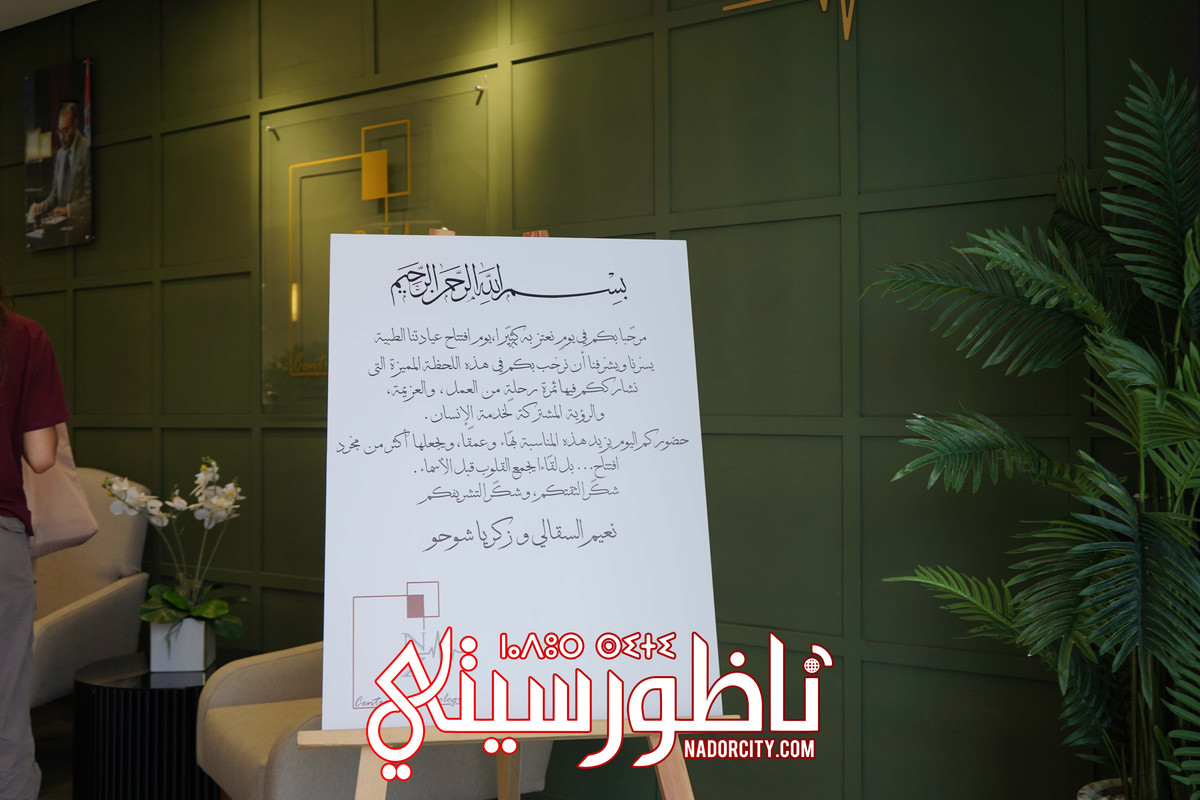 بِسْمِ اللَّهِ الرَّحْمَٰنِ الرَّحِيمِ
مرحبًا بكم في يوم نعتز به كثيرًا، يوم افتتاح عيادتنا الطبية
يسرنا ويشرفنا أن نرحب بكم في هذه اللحظة المميزة التي
نشارككم فيها ثمرة رحلةٍ من العمل، والعزيمة،
والرؤية المشتركة لخدمة الإنسان.
حضوركم اليوم يزيد هذه المناسبة بهاء وعمقًا، ويجعلها أكثر من مجرد
افتتاح... بل لقاءً يجمع القلوب قبل الأسماء.
شكرًا لثقتكم، وشكرًا لتشريفكم
نعيم السقالي و زكريا شوحو
ⵏⴰⴷⵓⵔ ⵙⵉⵜⵉ
ناظورسيتي
NADORCITY.COM